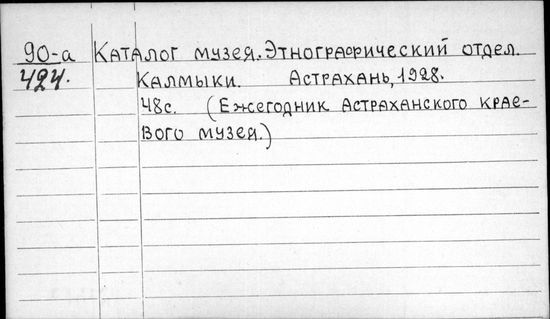 90-а Каталог музея. Этнографический отдел.
424. Калмыки. Астрахань, 1928.
48с. (Ежегодник Астраханского крае-
вого музея.)